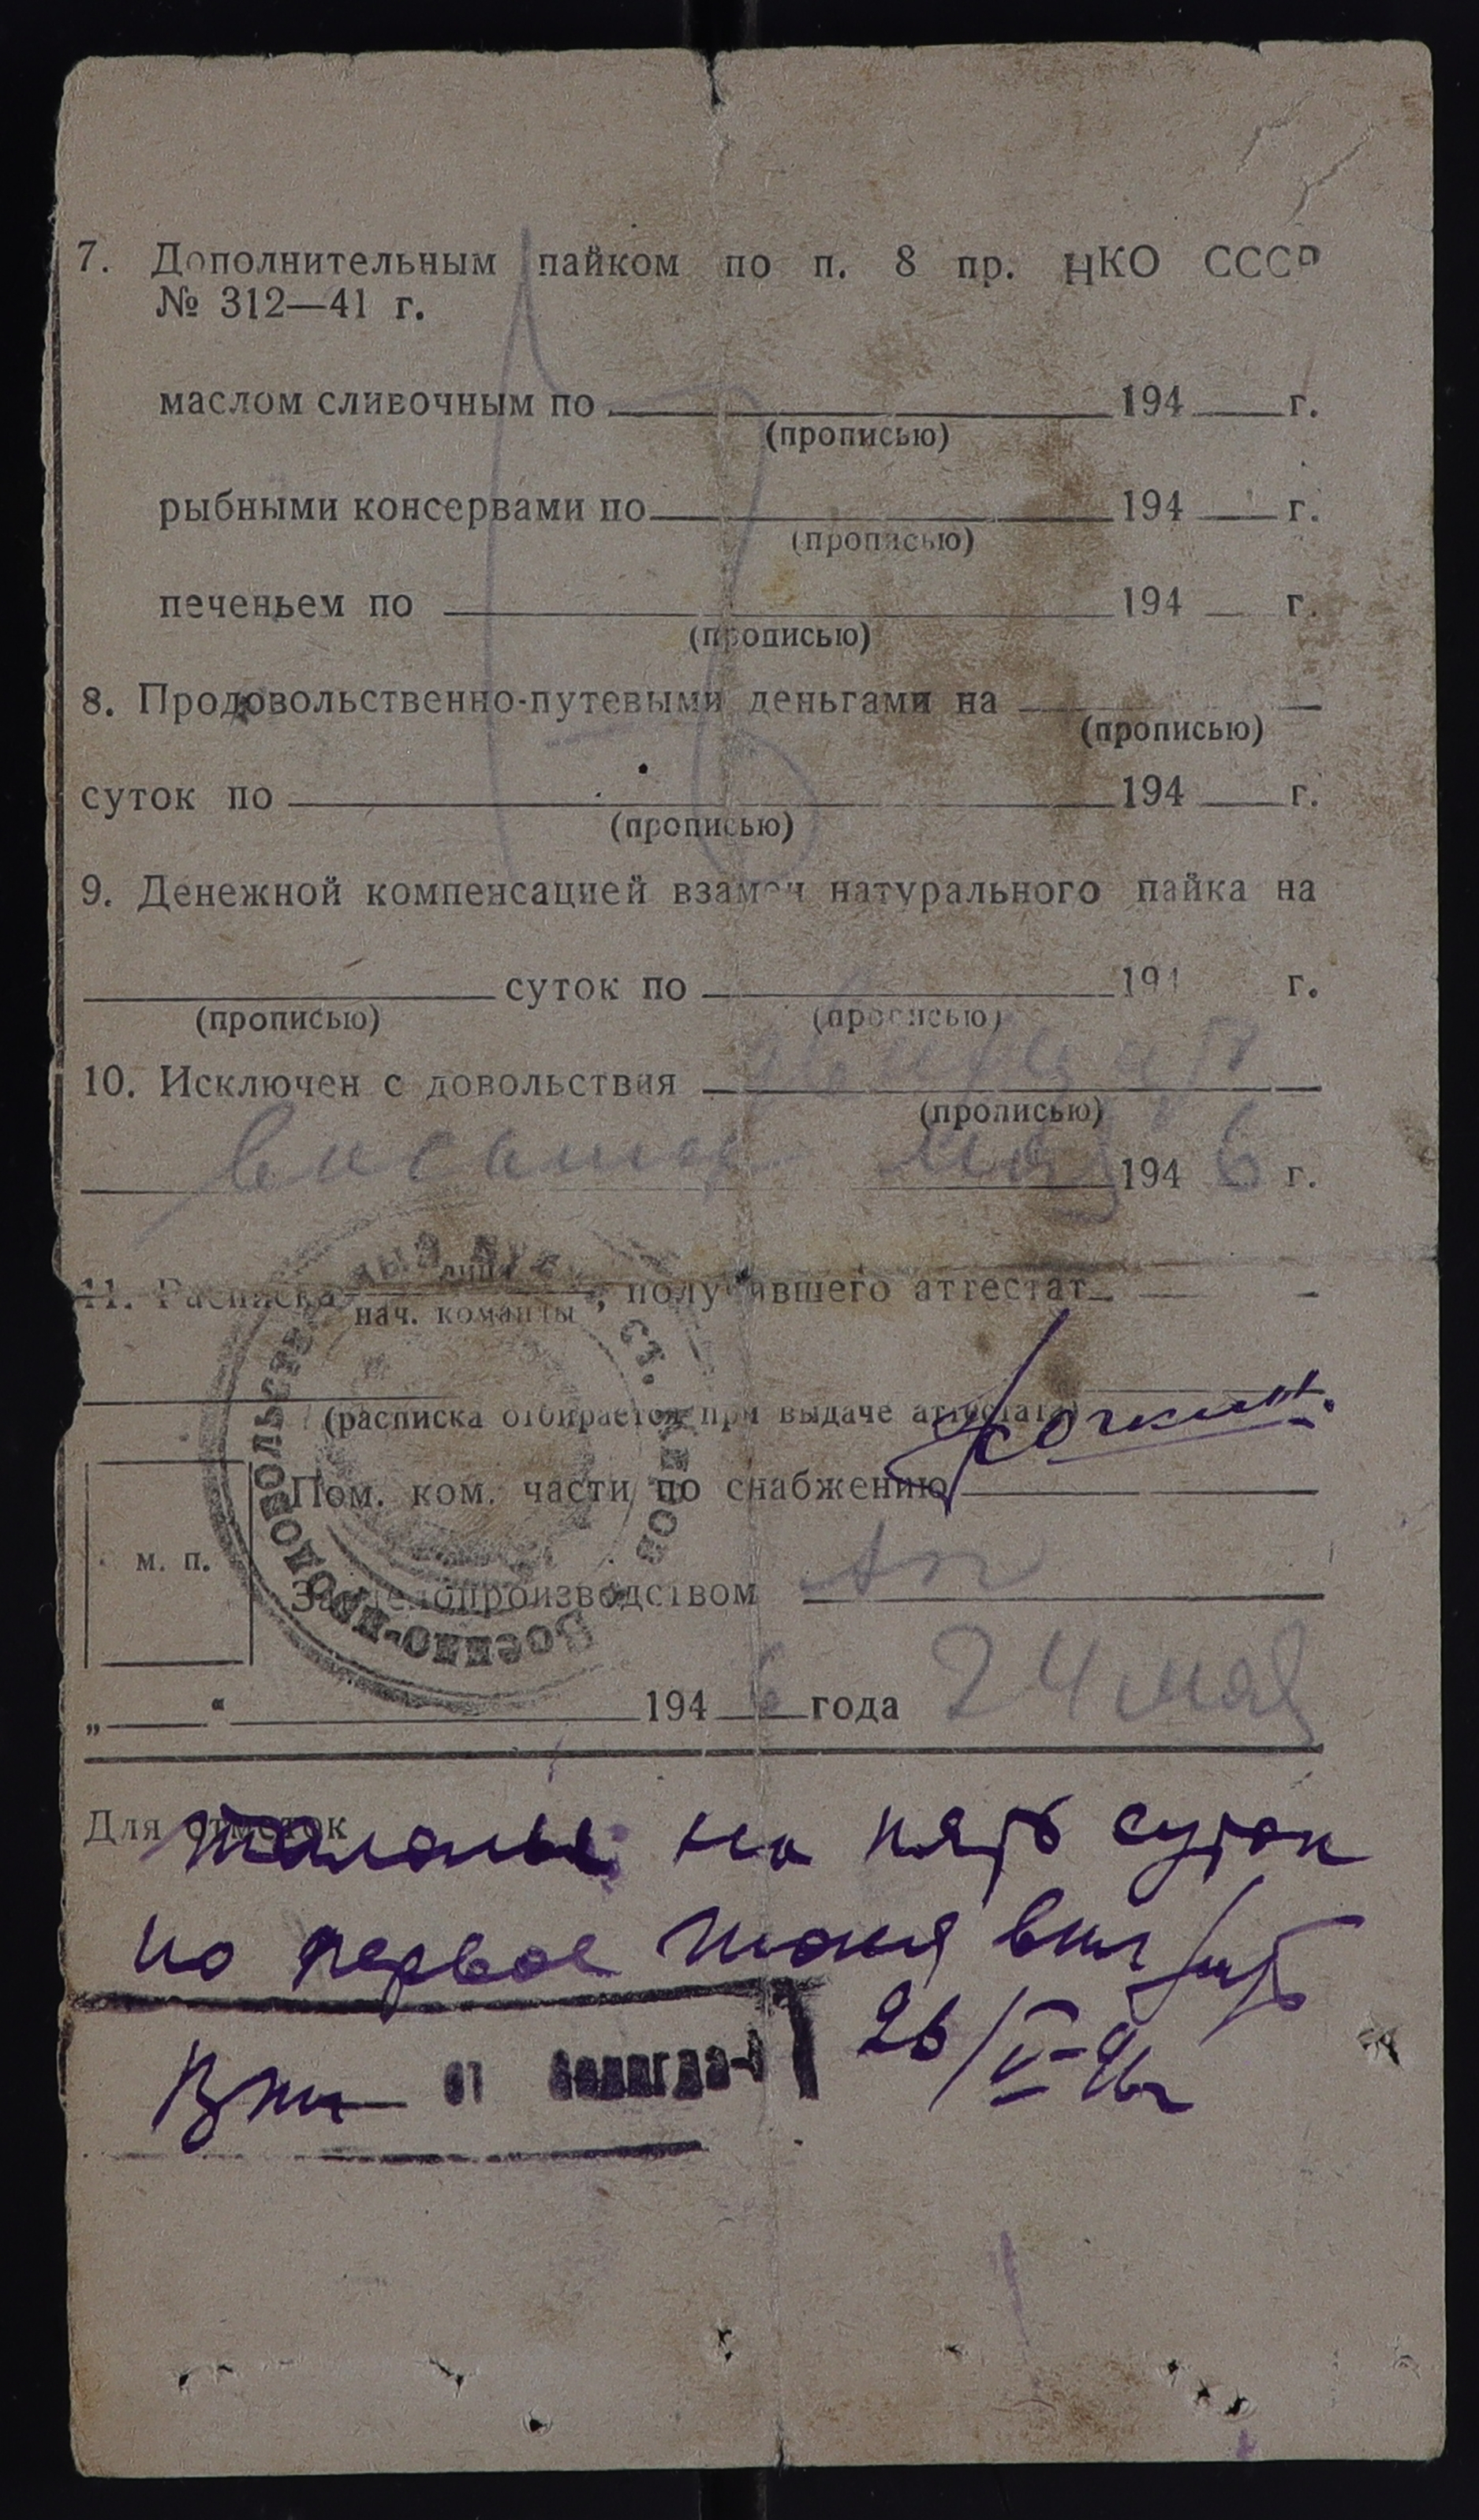 7. Дополнительным пайком по п. 8 пр. НКО СССР
№ 312—41 г.
маслом сливочным по 194 г.
(прописью)
рыбными консервами по 194 г.
(прописью)
печеньем по 194 г.
(прописью)
8. Продовольственно-путевыми деньгами на
(прописью)
суток по 194 г.
(прописью)
9. Денежной компенсацией взамен натурального пайка на
суток по 194 г.
(прописью) (прописью)
10. Исключен с довольствия двадцать
(прописью)
мая 194 6 г.
11. Расписка лица
нач. команды, получившего аттестат
(расписка отбирается при выдаче аттестата)
Пом. ком. части по снабжению
м. п.
Зав. делопроизводством
„ “ 194 6 года 24 мая
Военно-продовольств
Для отметок
талоны на пять суток
по первое июня вкл
26/V-46г
ст Вологда-1